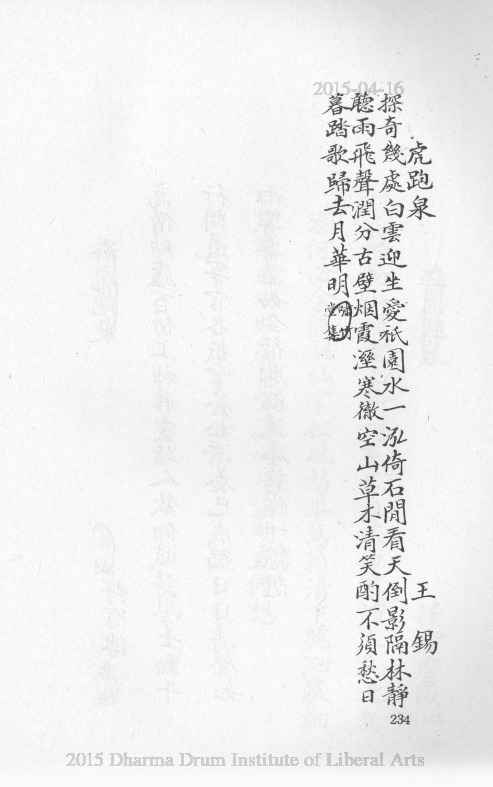 2015-04-16
虎跑泉
王錫
探奇幾處白雲迎坐愛祇園水一泓倚石閒看天倒影隔林靜
聽雨飛聲潤分古壁烟霞溼寒徹空山草木清笑酌不須愁日
暮踏歌歸去月華明
堂集
234
2015 Dharma Drum Institute of Liberal Arts